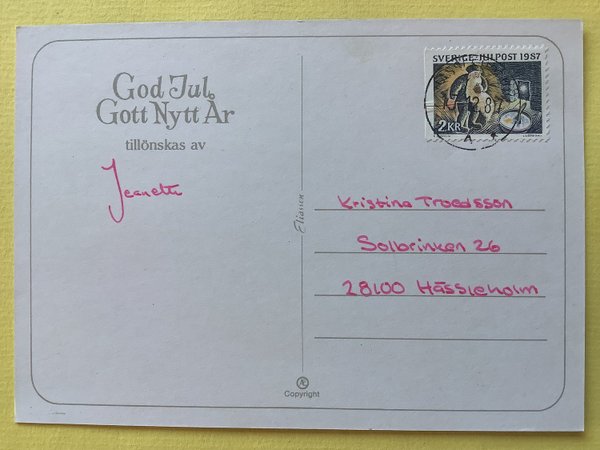 God Jul
Gott Nytt År
tillönskas av
Jeanette
Eliasson
SVERIGE JULPOST 1987
2 KR
Kristina Troedsson
Solbrinken 26
28100 Hässleholm
Copyright